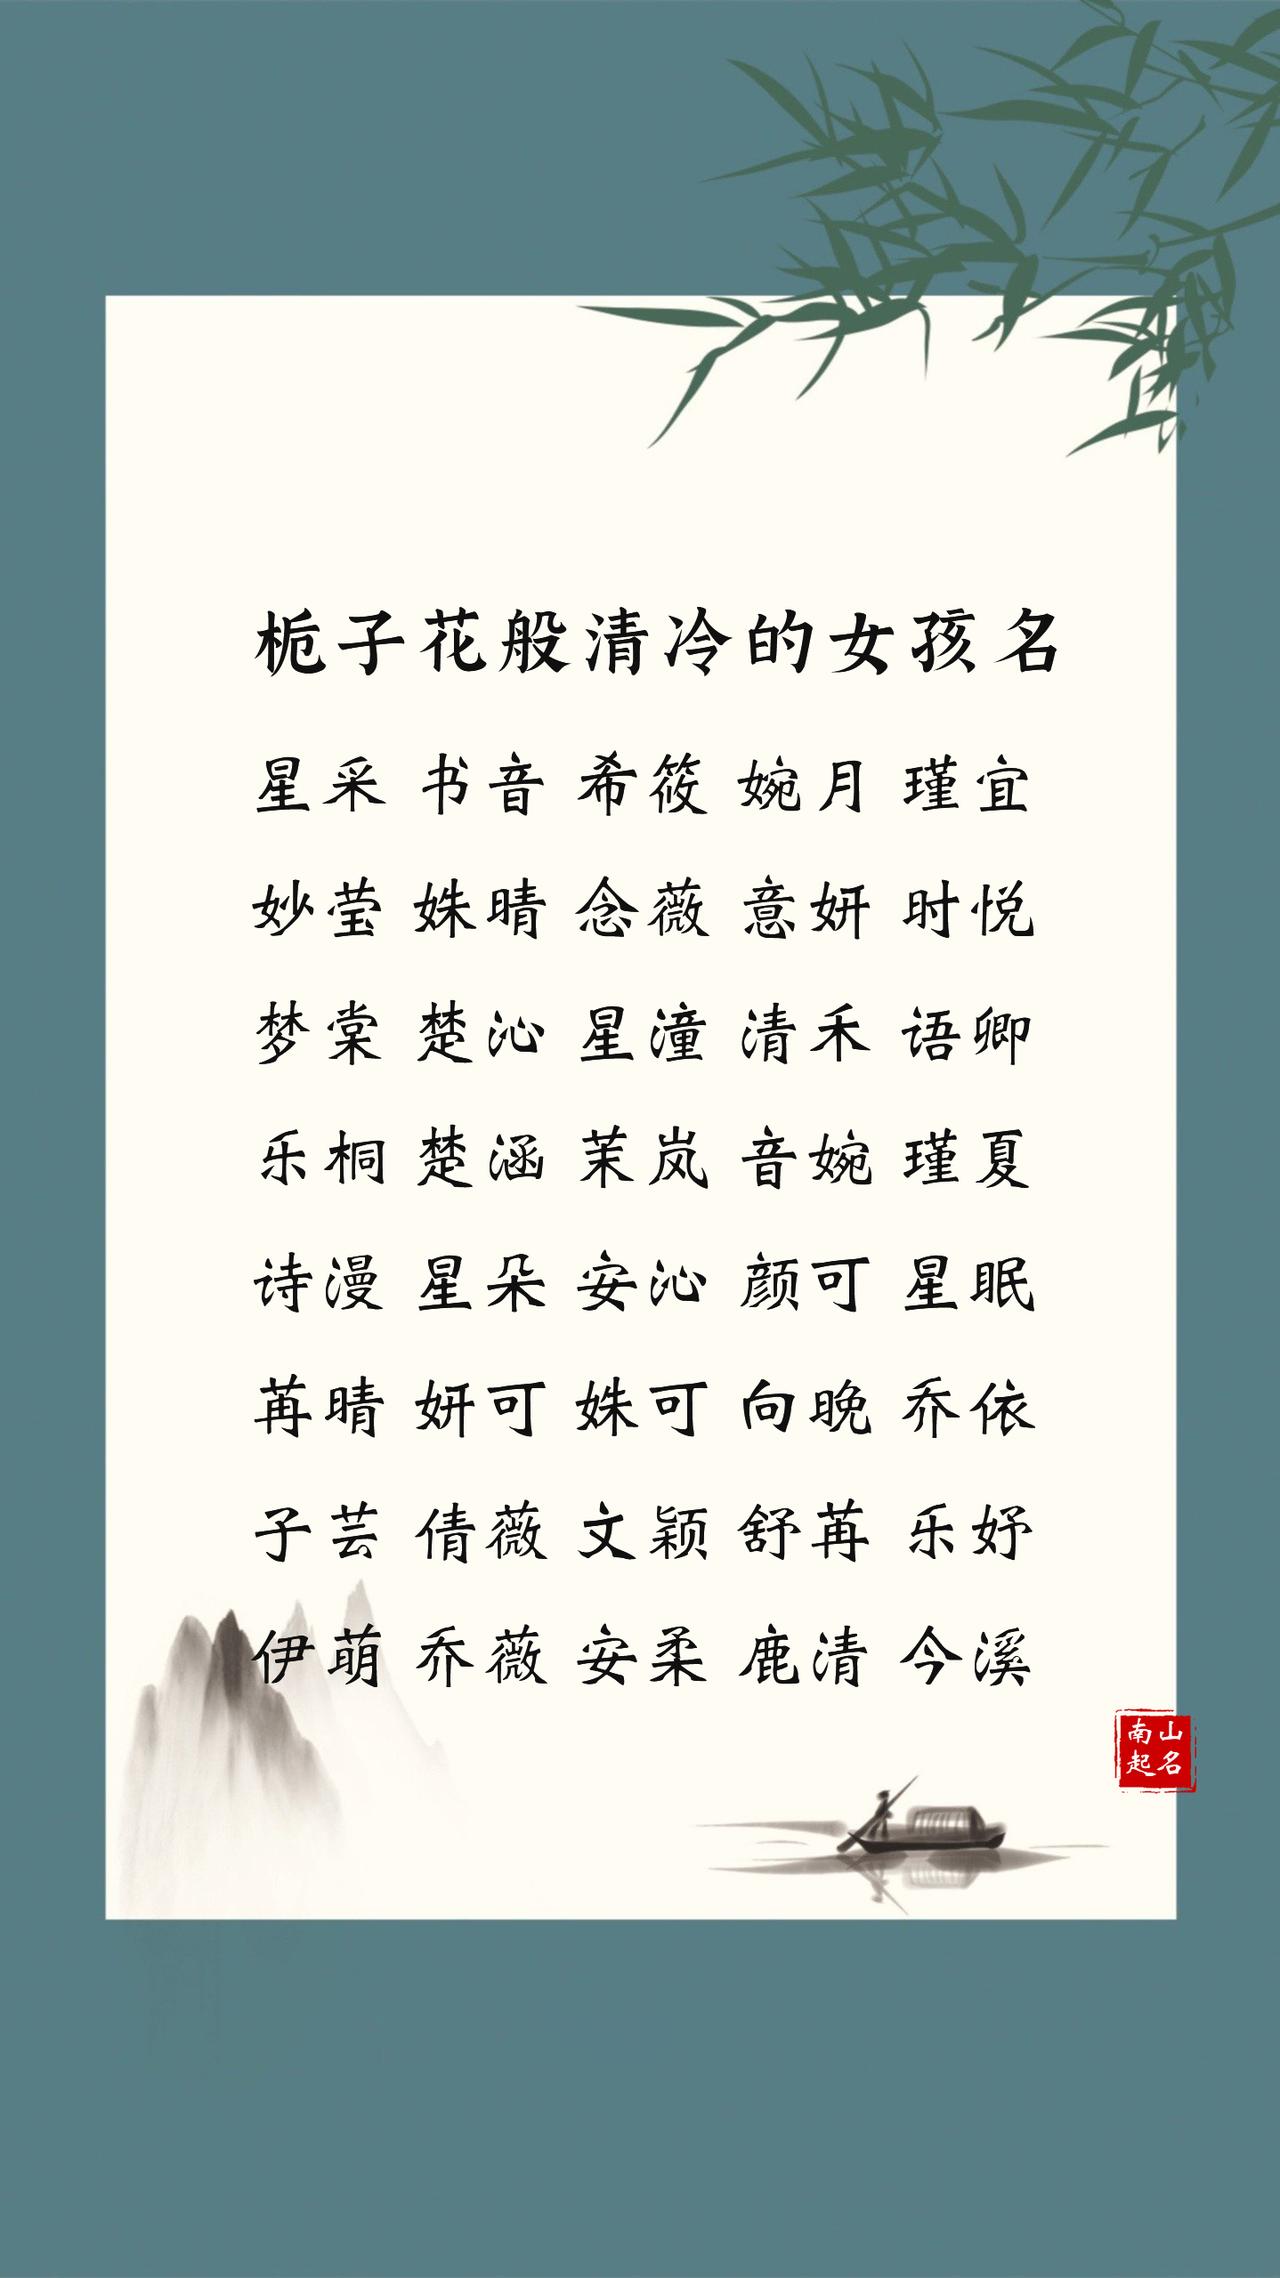 栀子花般清冷的女孩名
星采 书音 希筱 婉月 瑾宜
妙莹 姝晴 念薇 意妍 时悦
梦棠 楚沁 星潼 清禾 语卿
乐桐 楚涵 茉岚 音婉 瑾夏
诗漫 星朵 安沁 颜可 星眠
苒晴 妍可 姝可 向晚 乔依
子芸 倩薇 文颖 舒苒 乐妤
伊萌 乔薇 安柔 鹿清 今溪
南山
起名